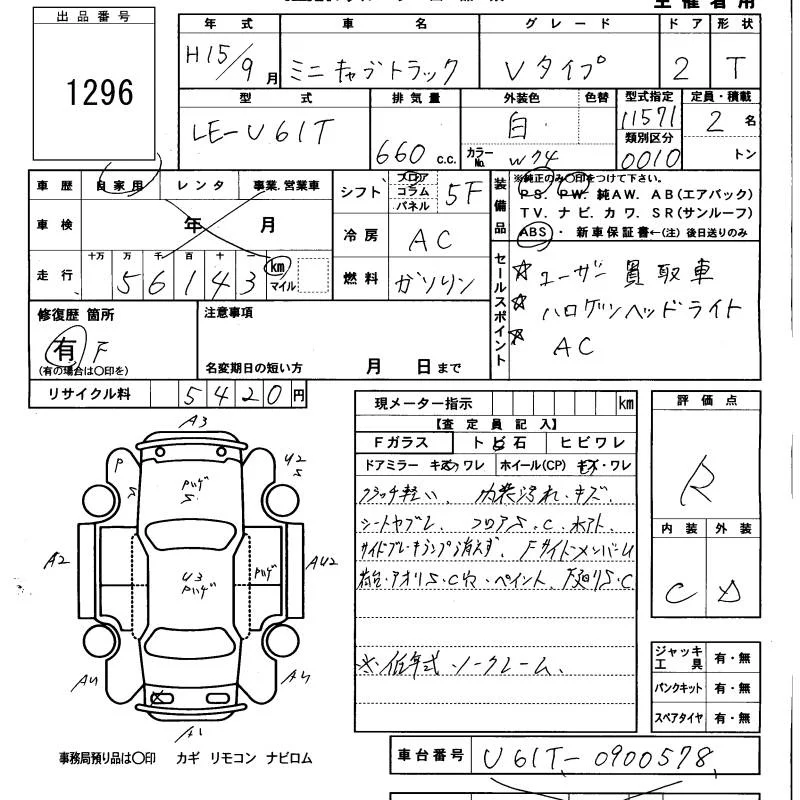 出品番号
1296
年式 車名 グレード ドア 形状
H15/9月 ミニキャブトラック Vタイプ 2 T
型式 排気量 外装色 色替 型式指定 定員・積載
LE-U61T 660c.c. 白 カラーNo. W24 11571 2名
類別区分
0010 トン
車歴 自家用 レンタ 事業.営業車
車検 年 月
走行 十万 万 千 百 十 一 km マイル
56143
シフト フロア コラム パネル 5F
冷房 AC
燃料 ガソリン
装備品
※純正のみ〇印をつけて下さい。
PS. PW. 純AW. AB(エアバック)
TV. ナビ. カワ. SR(サンルーフ)
ABS・新車保証書←(注)後日送りのみ
セールスポイント
☆ユーザー買取車
☆ハロゲンヘッドライト
☆AC
修復歴 箇所
有 F
(有の場合は〇印を)
注意事項
名変期日の短い方 月 日まで
リサイクル料 5420円
現メーター指示 km
【査定員記入】
Fガラス トビ石 ヒビワレ
ドアミラー キズ ワレ ホイール(CP) キズ・ワレ
クラッチ軽い、内装汚れ・キズ
シートヤブレ、フロアS.C.水アト
サイドブレーキランプ消えず、FサイドメンバーU
荷台・アオリS・C・ペイント、下廻りS・C
※低年式ノークレーム、
評価点
R
内装 外装
C D
ジャッキ工具 有・無
パンクキット 有・無
スペアタイヤ 有・無
A3
P
S
U2
S
Pハゲ
S
A2
U3
Pハゲ
Pハゲ
AU2
A4
A4
A1
事務局預り品は〇印 カギ リモコン ナビロム
車台番号 U61T-0900578